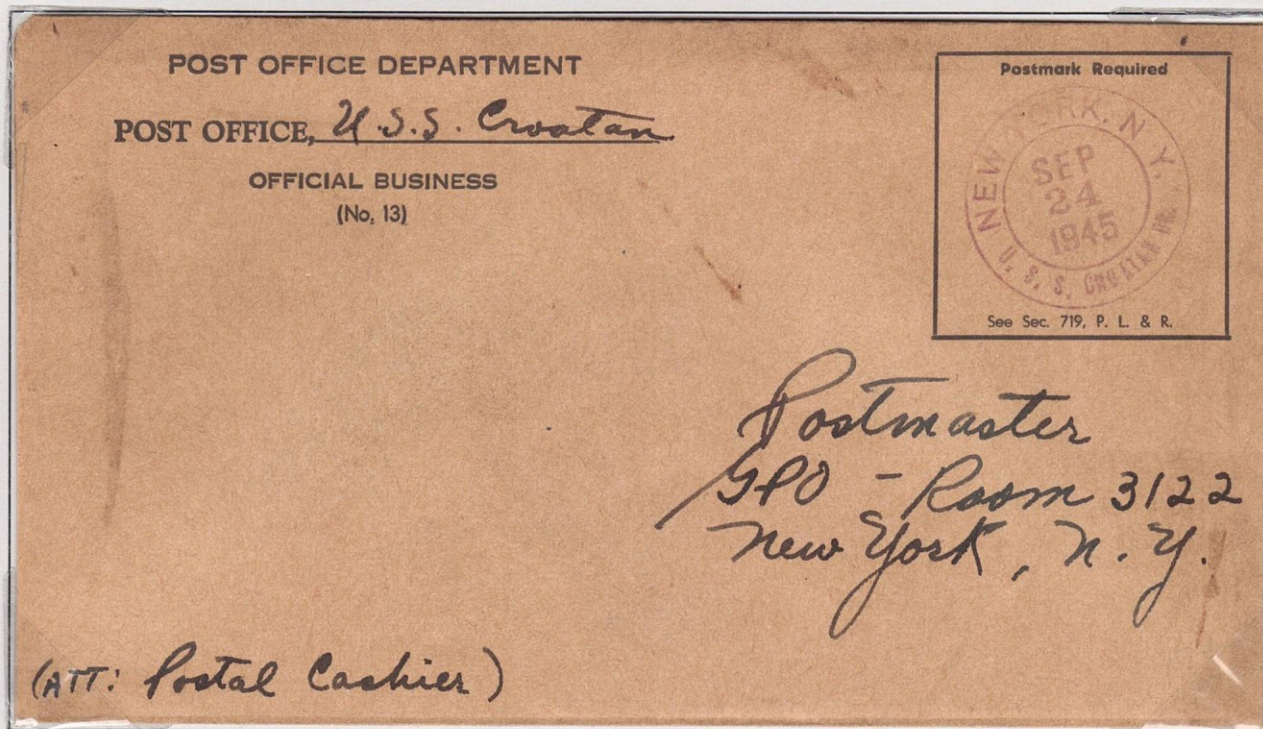 POST OFFICE DEPARTMENT
POST OFFICE, U.S.S. Croatan
OFFICIAL BUSINESS
(No. 13)
Postmark Required
NEW YORK, N.Y.
SEP
24
1945
U. S. S. CROATAN
See Sec. 719, P. L. & R.
Postmaster
GPO - Room 3122
New York, N. Y.
(ATT: Postal Cashier)